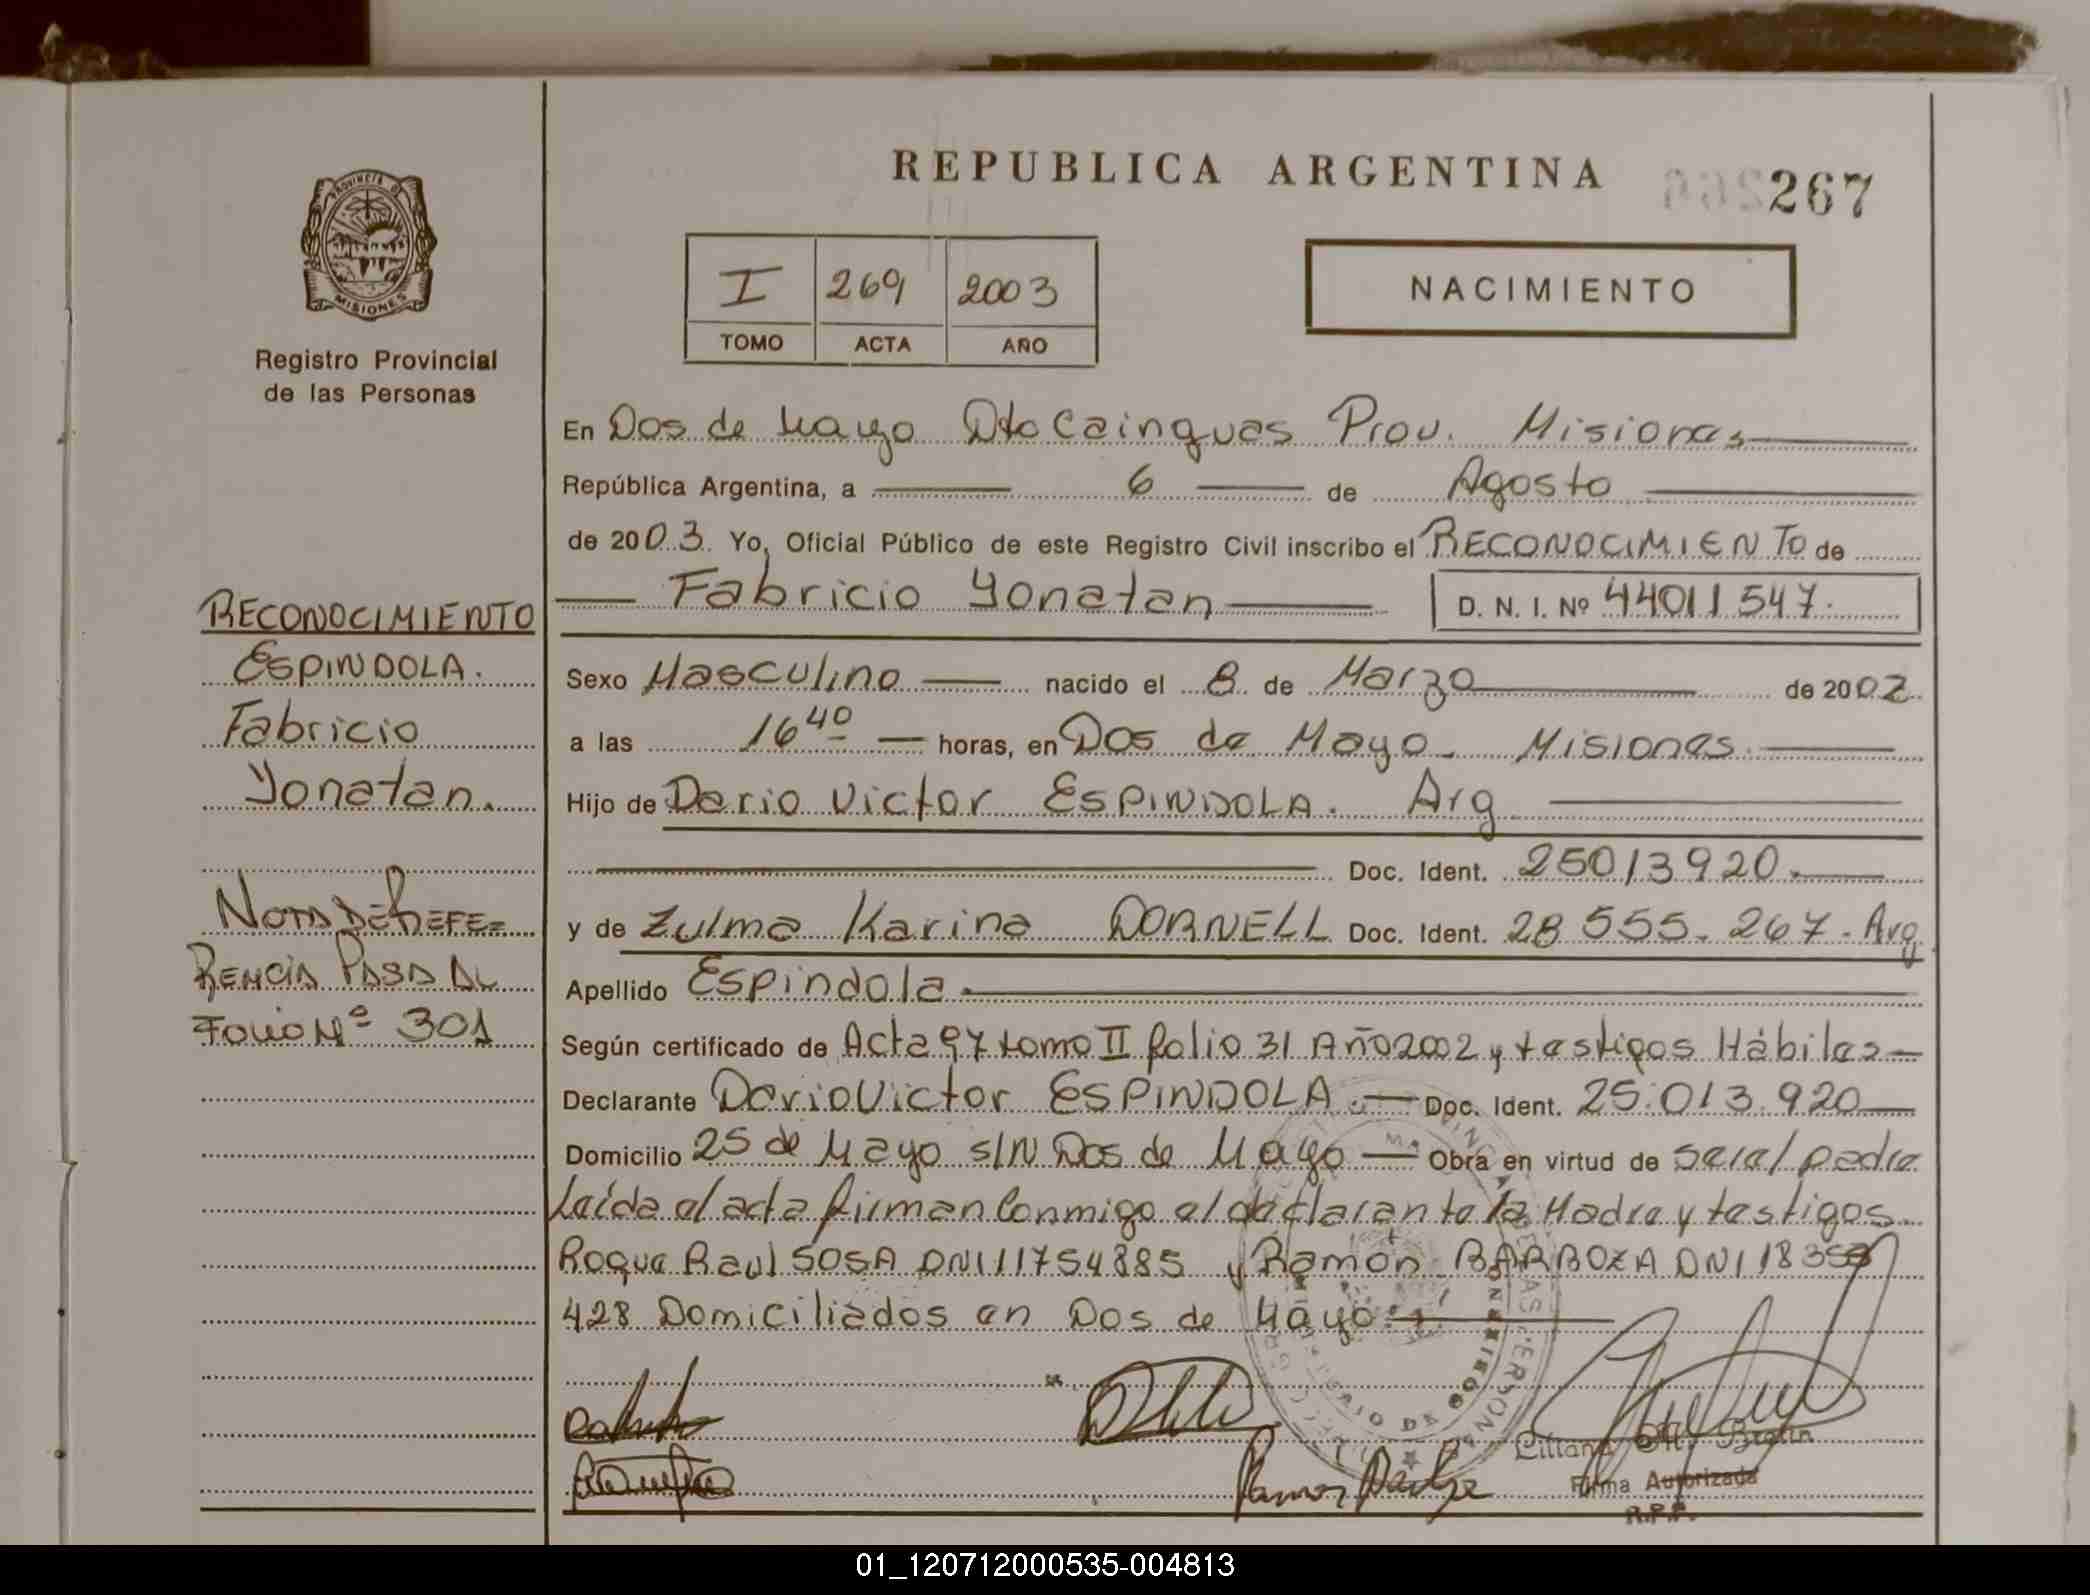 REPUBLICA ARGENTINA
267
PROVINCIA DE
MISIONES
Registro Provincial
de las Personas
I 269 2003
TOMO ACTA AÑO
NACIMIENTO
En Dos de Mayo Dto Cainguas Prov. Misiones
República Argentina, a 6 de Agosto
de 2003 Yo, Oficial Público de este Registro Civil inscribo el RECONOCIMIENTO de
Fabricio Yonatan D. N. I. Nº 44011547.
Sexo Masculino nacido el 8 de Marzo de 2002
a las 16 40 horas, en Dos de Mayo - Misiones.
Hijo de Dario Victor ESPINDOLA. Arg
Doc. Ident. 25013920.
y de Zulma Karina DORNELL Doc. Ident. 28 555. 267. Arg
Apellido Espindola.
Según certificado de Acta 97 tomo II folio 31 Año 2002 y testigos Hábiles
Declarante Dario Victor ESPINDOLA. Doc. Ident. 25.013.920
Domicilio 25 de Mayo s/N Dos de Mayo Obra en virtud de ser el padre
Leída el acta firman Conmigo el declarante la Madre y testigos
Roque Raul SOSA DNI 11754885 y Ramón BARBOZA DNI 18353
428 Domiciliados en Dos de Mayo.
RECONOCIMIENTO
ESPINDOLA.
Fabricio
Yonatan.
NOTA DE REFE=
RENCIA PASA AL
FOLIO Nº 301
Firma Autorizada
R.P.P.
01_120712000535-004813